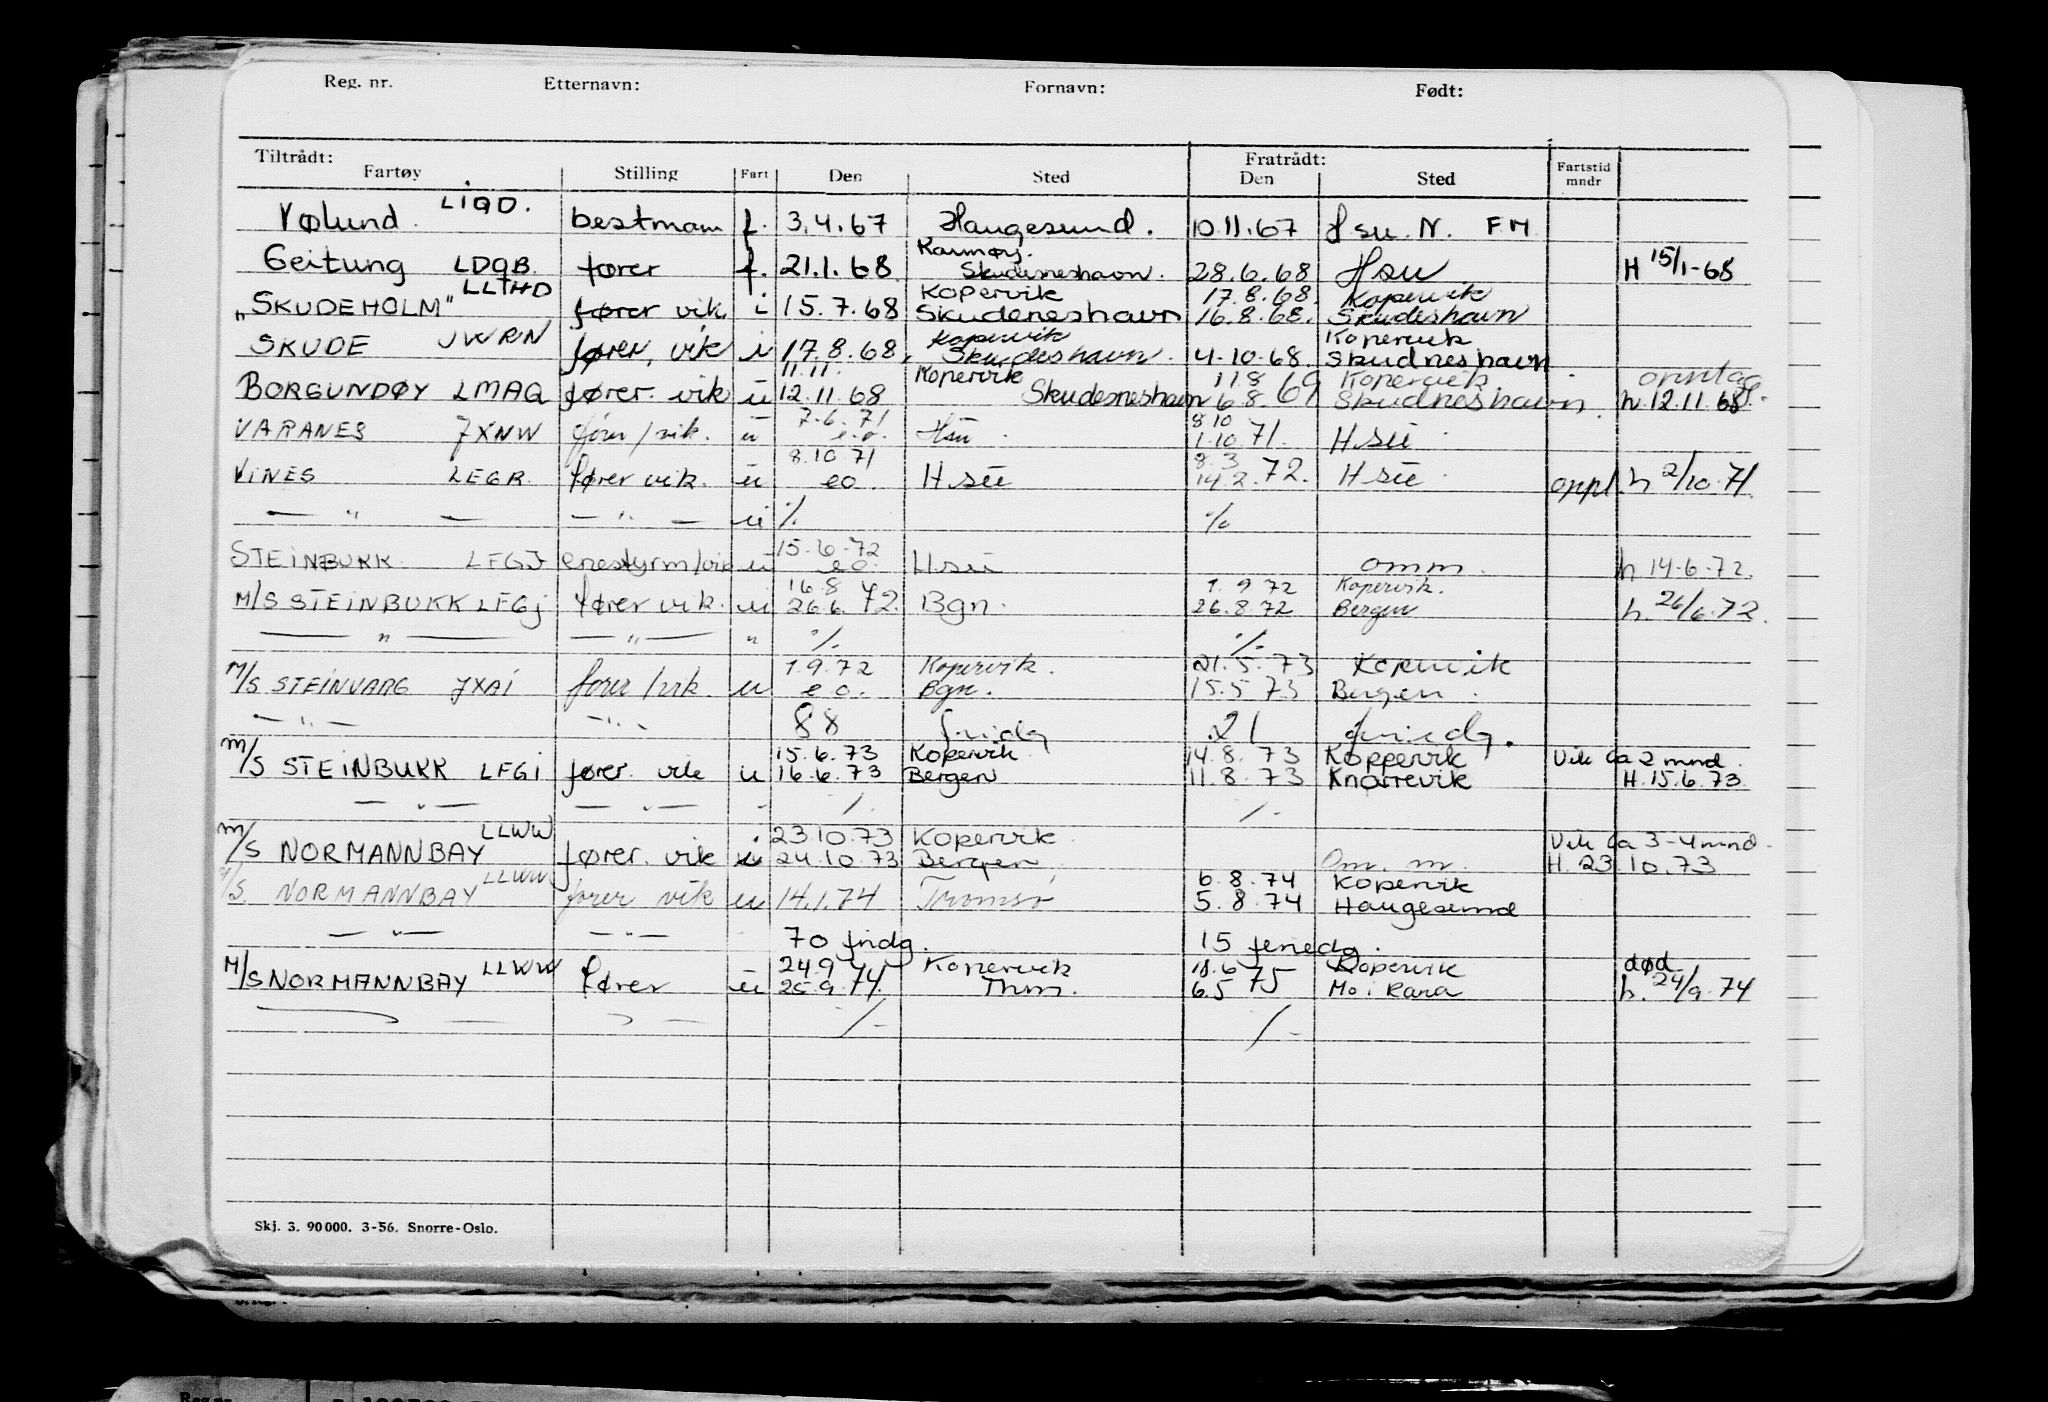 Reg. nr. Etternavn: Fornavn: Født:
Tiltrådt: Fratrådt:
Fartøy Stilling Fart Den Sted Den Sted Fartstid mndr
Vølund. LIQD. bestmann f. 3.4.67 Haugesund. 10.11.67 Hsu. N. F.M.
Karmøy.
Geitung LDQB. fører f. 21.1.68 Skudesneshavn. 28.6.68 Hsu H 15/1-68
LLHD Kopervik 17.8.68 Kopervik
"SKUDEHOLM" fører vik. i 15.7.68 Skudeneshavn 16.8.68. Skudeshavn
Kopervik Kopervik
SKUDE JWRN fører, vik u 17.8.68. Skudeshavn. 4.10.68. Skudneshavn
11.11. Kopervik 11.8 Kopervik.
BORGUNDØY LMAQ fører. vik u 12.11.68 Skudesneshavn 6.8. 69 Skudneshavn. h.12.11.68.
7.6.71 8.10
VARANES JXNW fører/vik. u e.o. Hsu. 1.10.71. Hsu.
8.10.71 8.3
VINES LEGR. fører vik. u eo. Hsu 14.2.72. Hsu. oppl. h 2/10.71.
— " — — " — u %. %
15.6.72
STEINBUKK. LFGJ enestyrm/vik u eo. Hsu omm. h 14.6.72.
16.8 1.9.72 Kopervik.
M/S STEINBUKK LFGj fører vik. u 26.6.72. Bgn. 26.8.72 Bergen h. 26/6.72.
— " — — " — " %. %.
1.9.72 Kopervik. 21.5.73 Kopervik
M/S STEINVARG JXAI fører/vik. u e.o. Bgn. 15.5.73 Bergen.
— " — — " — 88 fridg 21 feriedg.
15.6.73 Kopervik 14.8.73 Koppervik Vik ca 2 mnd.
m/S STEINBUKK LFGI fører. vik u 16.6.73 Bergen 11.8.73 Knarrevik H.15.6.73.
— " — — " — - %. %.
LLWW i 23.10.73 Kopervik Vik ca 3-4 mnd.
m/S NORMANNBAY fører. vik 24.10.73 Bergen Om. m. H. 23.10.73
LLWW 6.8.74 Kopervik
M/S. NORMANNBAY fører vik u 14.1.74 Tromsø 5.8.74 Haugesund
— " — — " — 70 fridg. 15 feriedg.
LLWW 24.9 Kopervik 11.6 Kopervik død
M/S NORMANNBAY fører u 25.9.74. Thm. 6.5 75 Mo i Rana h. 24/9.74
%. %.
Skj. 3. 90000. 3-56. Snorre-Oslo.